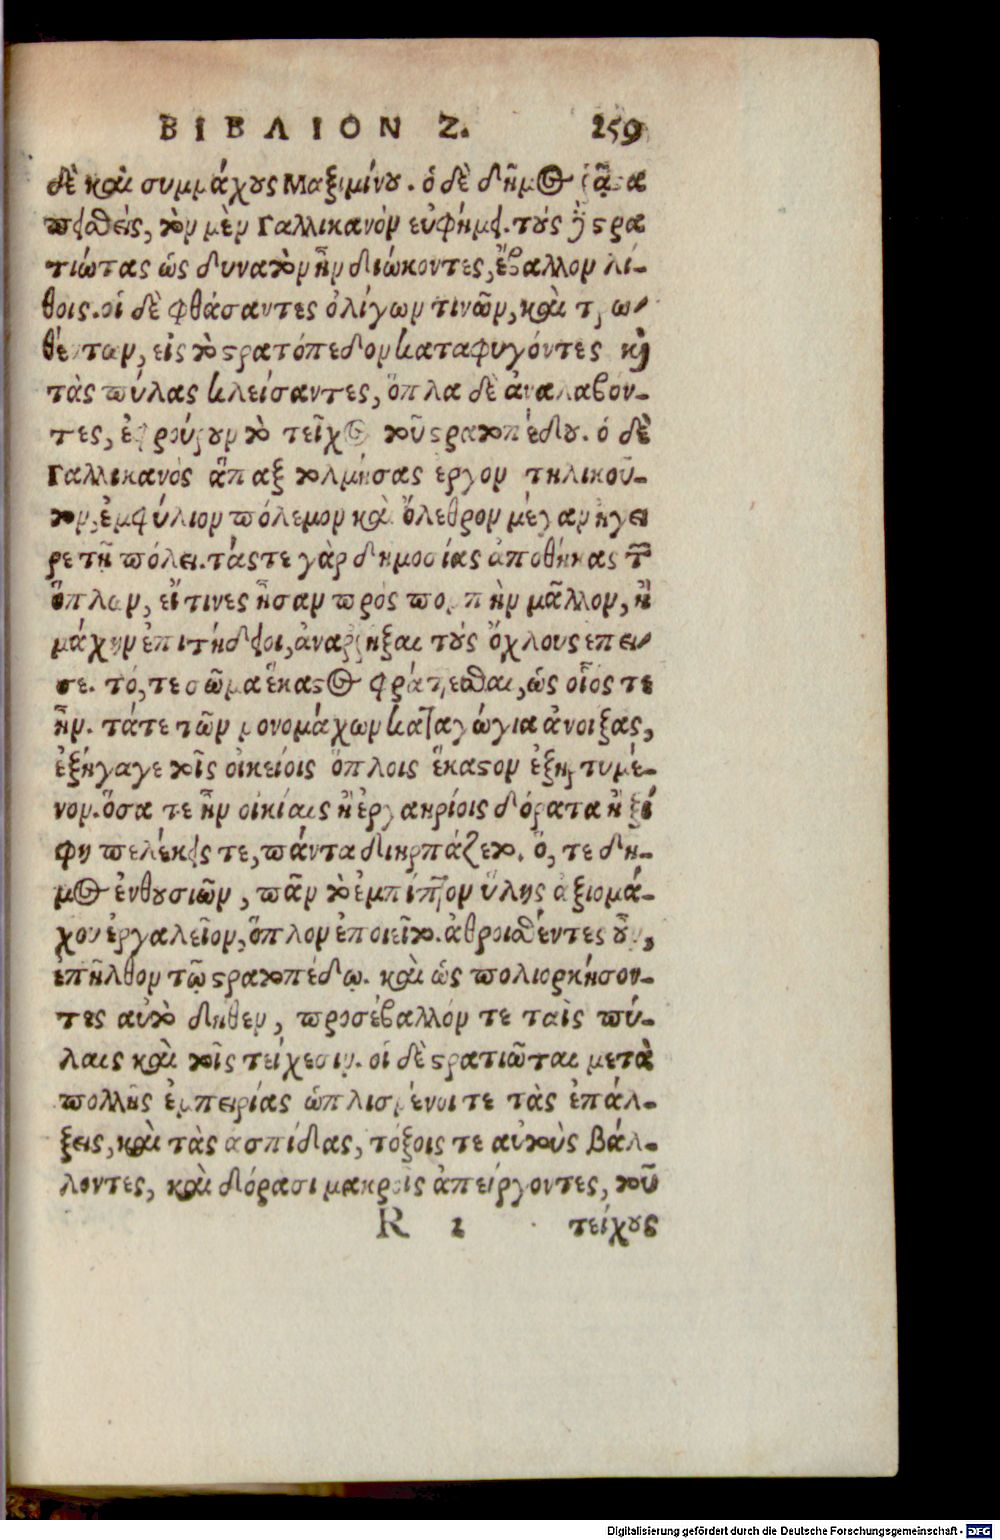 ΒΙΒΛΙΟΝ Ζ. 259
δὲ καὶ συμμάχους Μαξιμίνου. ὁ δὲ δῆμος ῥᾷστα
πεισθεὶς, τὸν μὲν Γαλλικανὸν εὐφήμει. τοὺς δὲ στρα
τιώτας ὡς δυνατὸν ἦν διώκοντες, ἔβαλλον λί-
θοις. οἱ δὲ φθάσαντες ὀλίγων τινῶν, καὶ τρω-
θέντων, εἰς τὸ στρατόπεδον καταφυγόντες καὶ
τὰς πύλας κλείσαντες, ὅπλα δὲ ἀναλαβόν-
τες, ἐφρούρουν τὸ τεῖχος τοῦ στρατοπέδου. ὁ δὲ
Γαλλικανὸς ἅπαξ τολμήσας ἔργον τηλικοῦ-
τον, ἐμφύλιον πόλεμον καὶ ὄλεθρον μέγαν ἤγει
ρε τῇ πόλει. τάς τε γὰρ δημοσίας ἀποθήκας τῶν
ὅπλων, εἴ τινες ἦσαν πρὸς πομπὴν μᾶλλον, ἢ
μάχην ἐπιτήδειοι, ἀναρρῆξαι τοὺς ὄχλους ἔπει-
σε. τό, τε σῶμα ἕκαστος φράττεσθαι, ὡς οἷός τε
ἦν. τά τε τῶν μονομάχων καταγώγια ἀνοίξας,
ἐξήγαγε τοῖς οἰκείοις ὅπλοις ἕκαστον ἐξηρτυμέ-
νον. ὅσα τε ἦν οἰκίαις ἢ ἐργαστηρίοις δόρατα ἢ ξί
φη πελέκεις τε, πάντα διηρπάζετο. ὅ, τε δῆ-
μος ἐνθουσιῶν, πᾶν τὸ ἐμπίπτον ὕλης ἀξιομά-
χου ἐργαλεῖον, ὅπλον ἐποιεῖτο. ἀθροισθέντες οὖν,
ἐπῆλθον τῷ στρατοπέδῳ. καὶ ὡς πολιορκήσον-
τες αὐτὸ δῆθεν, προσέβαλλόν τε ταῖς πύ-
λαις καὶ τοῖς τείχεσιν. οἱ δὲ στρατιῶται μετὰ
πολλῆς ἐμπειρίας ὡπλισμένοι τε τὰς ἐπάλ-
ξεις, καὶ τὰς ἀσπίδας, τόξοις τε αὐτοὺς βάλ-
λοντες, καὶ δόρασι μακροῖς ἀπείργοντες, τοῦ
R 2 τείχους
Digitalisierung gefördert durch die Deutsche Forschungsgemeinschaft - DFG